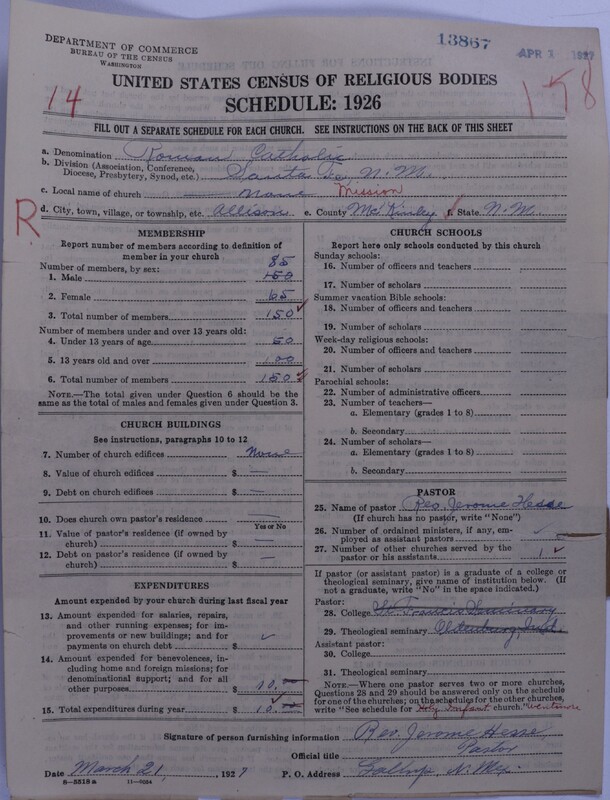 13867
APR 1 1927
DEPARTMENT OF COMMERCE
BUREAU OF THE CENSUS
WASHINGTON
UNITED STATES CENSUS OF RELIGIOUS BODIES
SCHEDULE: 1926
14
178
FILL OUT A SEPARATE SCHEDULE FOR EACH CHURCH. SEE INSTRUCTIONS ON THE BACK OF THIS SHEET
a. Denomination Roman Catholic
b. Division (Association, Conference,
Diocese, Presbytery, Synod, etc.) Santa Fe, N. M.
c. Local name of church — None Mission
R
d. City, town, village, or township, etc. Allison e. County McKinley f. State N. M.
MEMBERSHIP
Report number of members according to definition of
member in your church
Number of members, by sex: 85
1. Male 150
2. Female 65
3. Total number of members 150 ✓
Number of members under and over 13 years old:
4. Under 13 years of age 50
5. 13 years old and over 100
6. Total number of members 150 ✓
NOTE.—The total given under Question 6 should be
the same as the total of males and females given under Question 3.
CHURCH BUILDINGS
See instructions, paragraphs 10 to 12
7. Number of church edifices None
8. Value of church edifices $ —
9. Debt on church edifices $ —
10. Does church own pastor's residence —
Yes or No
11. Value of pastor's residence (if owned by
church) $ —
12. Debt on pastor's residence (if owned by
church) $ —
EXPENDITURES
Amount expended by your church during last fiscal year
13. Amount expended for salaries, repairs,
and other running expenses; for im-
provements or new buildings; and for
payments on church debt $ ✓
14. Amount expended for benevolences, in-
cluding home and foreign missions; for
denominational support; and for all
other purposes $ 10.—
15. Total expenditures during year $ 10.— ✓
CHURCH SCHOOLS
Report here only schools conducted by this church
Sunday schools:
16. Number of officers and teachers
17. Number of scholars
Summer vacation Bible schools:
18. Number of officers and teachers
19. Number of scholars
Week-day religious schools:
20. Number of officers and teachers
21. Number of scholars
Parochial schools:
22. Number of administrative officers
23. Number of teachers—
a. Elementary (grades 1 to 8)
b. Secondary
24. Number of scholars—
a. Elementary (grades 1 to 8)
b. Secondary
PASTOR
25. Name of pastor Rev. Jerome Hesse
(If church has no pastor, write "None")
26. Number of ordained ministers, if any, em-
ployed as assistant pastors ✓
27. Number of other churches served by the
pastor or his assistants 1 ✓
If pastor (or assistant pastor) is a graduate of a college or
theological seminary, give name of institution below. (If
not a graduate, write "No" in the space indicated.)
Pastor:
28. College St. Francis Seminary
29. Theological seminary Oldenburg, Ind.
Assistant pastor:
30. College
31. Theological seminary
NOTE.—Where one pastor serves two or more churches,
Questions 28 and 29 should be answered only on the schedule
for one of the churches; on the schedules for the other churches,
write "See schedule for Holy Infant church."
Signature of person furnishing information Rev. Jerome Hesse
Official title Pastor
Date March 21, 1927 P. O. Address Gallup, N. Mex.
8—5518 a 11—9264